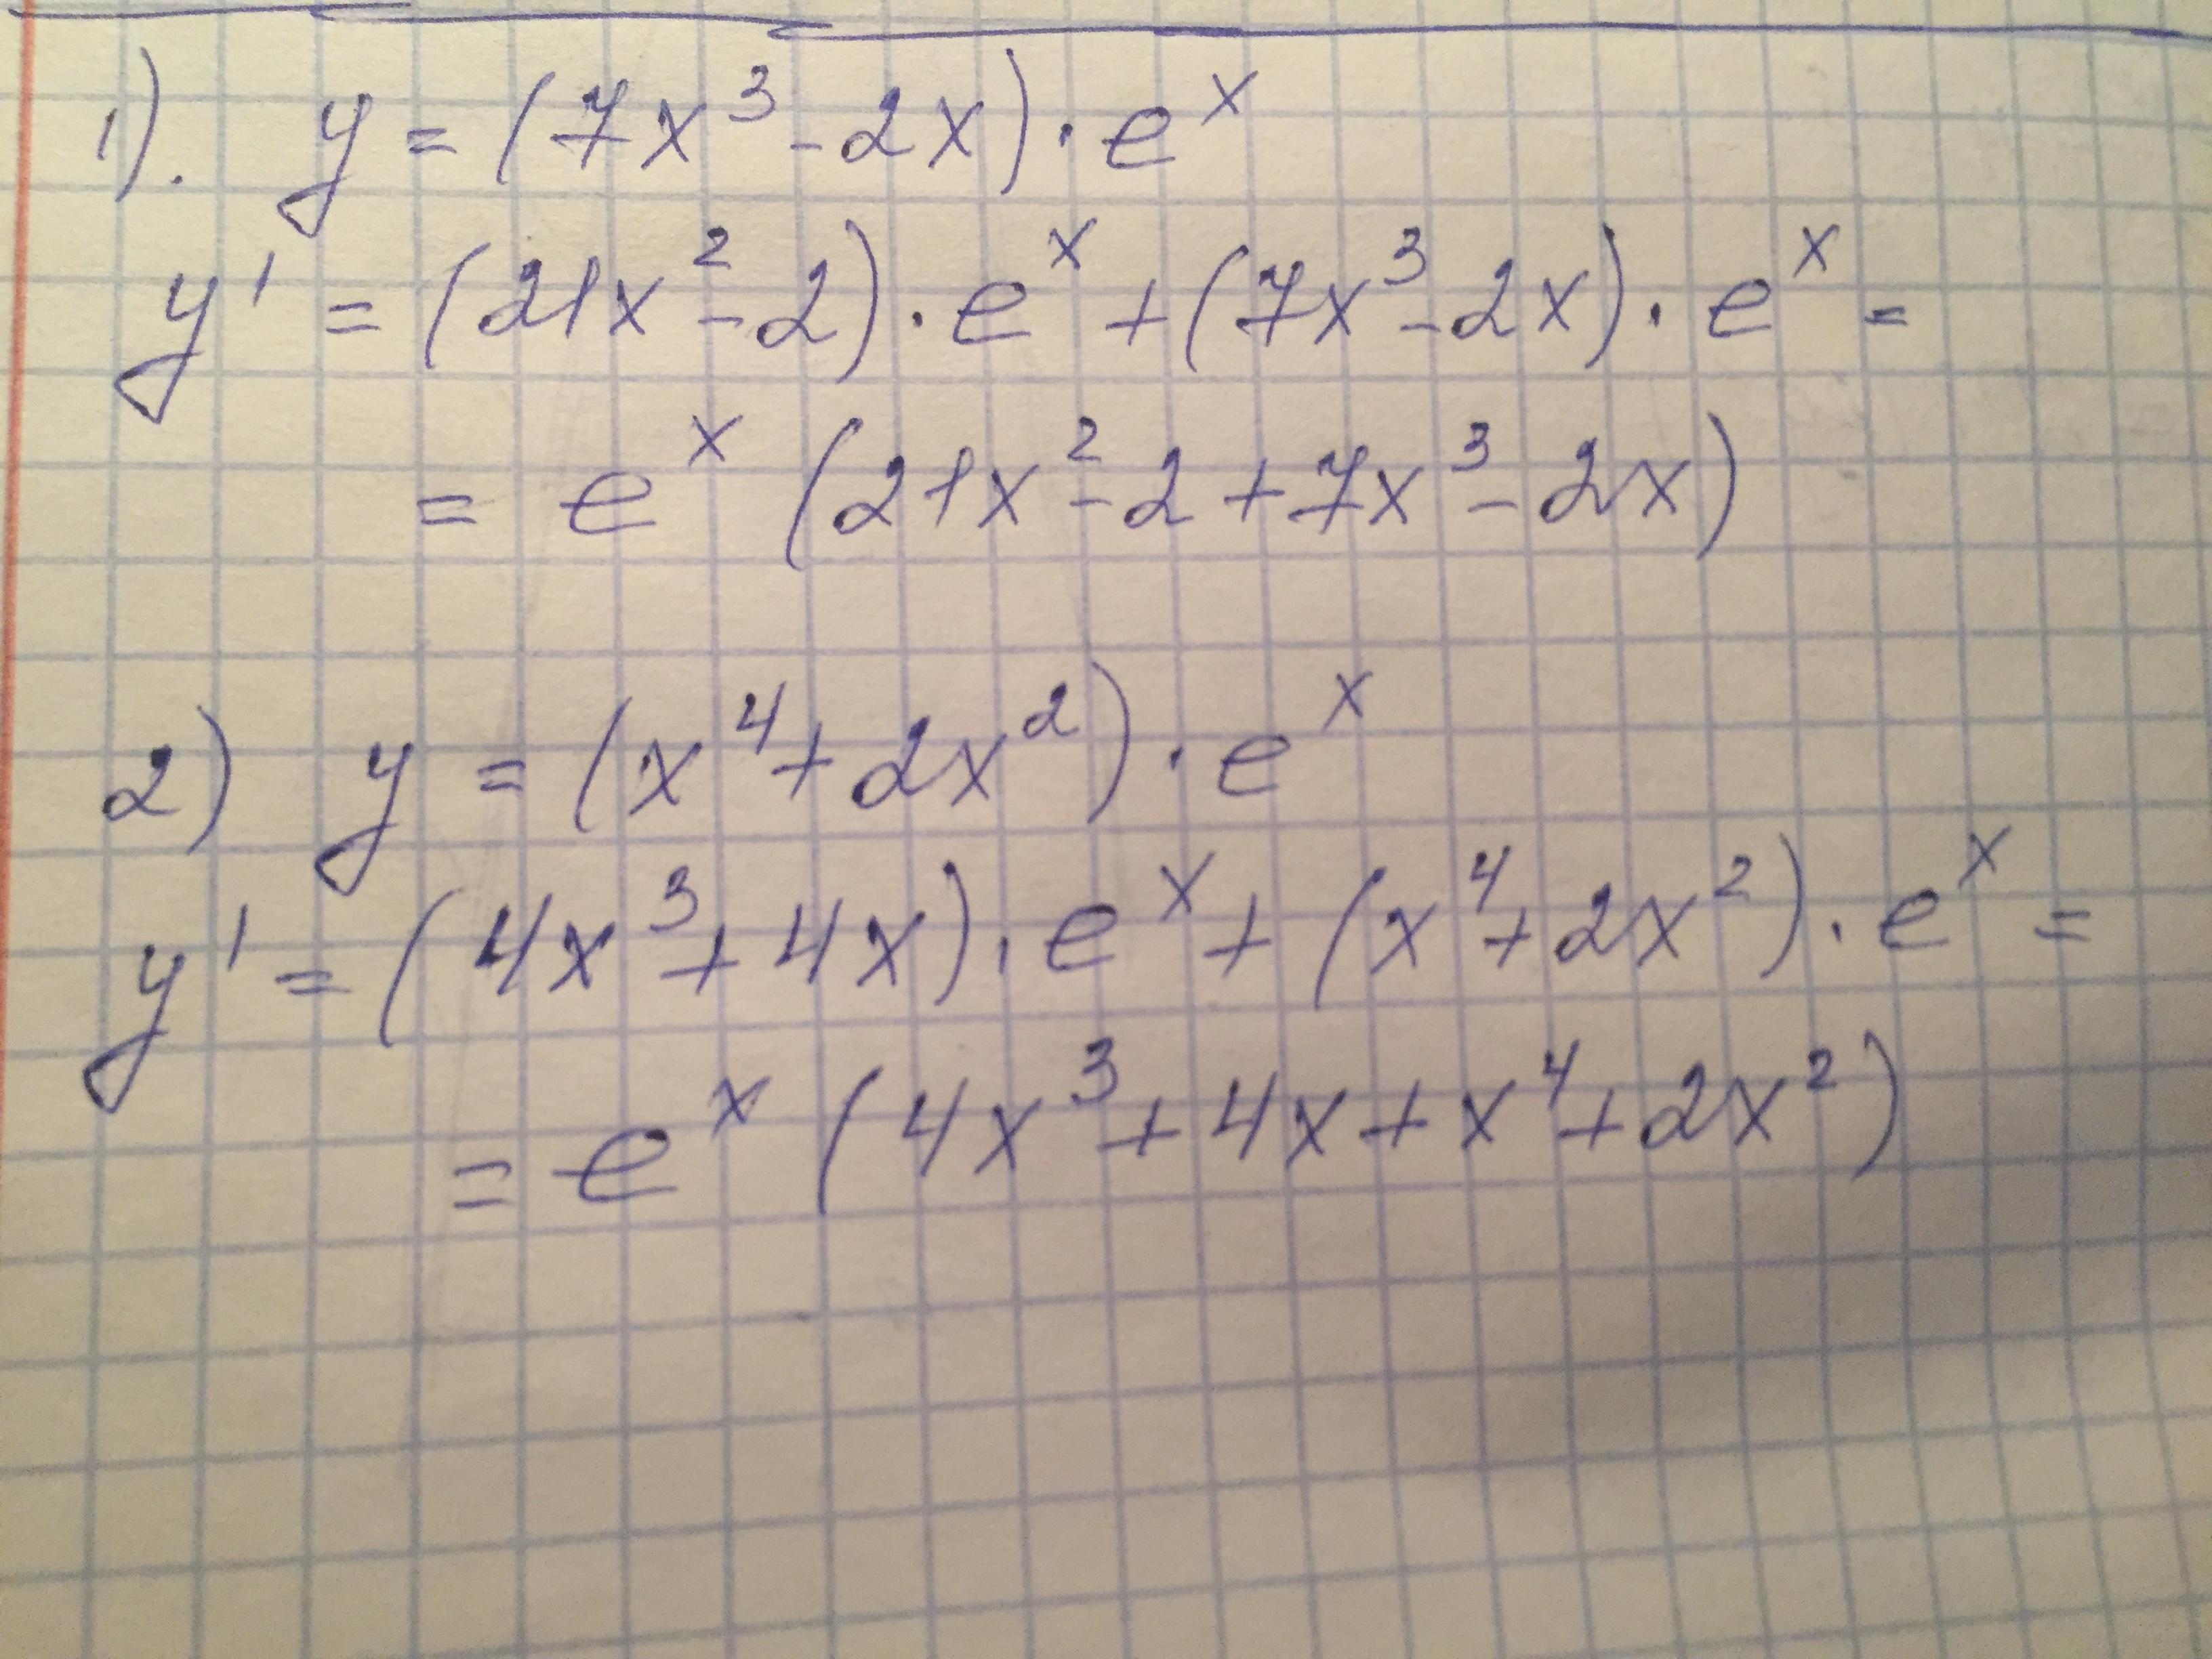 1). y = (7x³ - 2x) · eˣ
y' = (21x² - 2) · eˣ + (7x³ - 2x) · eˣ =
= eˣ (21x² - 2 + 7x³ - 2x)
2) y = (x⁴ + 2x²) · eˣ
y' = (4x³ + 4x) · eˣ + (x⁴ + 2x²) · eˣ =
= eˣ (4x³ + 4x + x⁴ + 2x²)